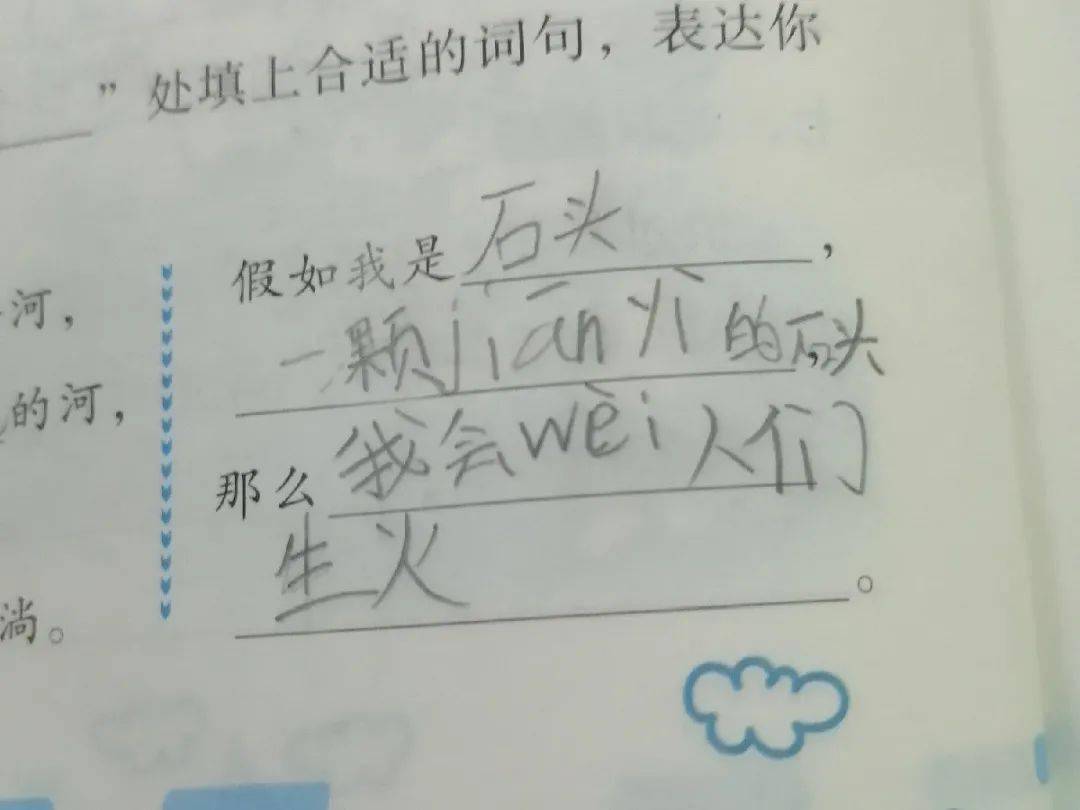 ”处填上合适的词句，表达你
假如我是石头，
河，
一颗jiān yì的石头
的河，
那么我会wèi人们
生火。
淌。